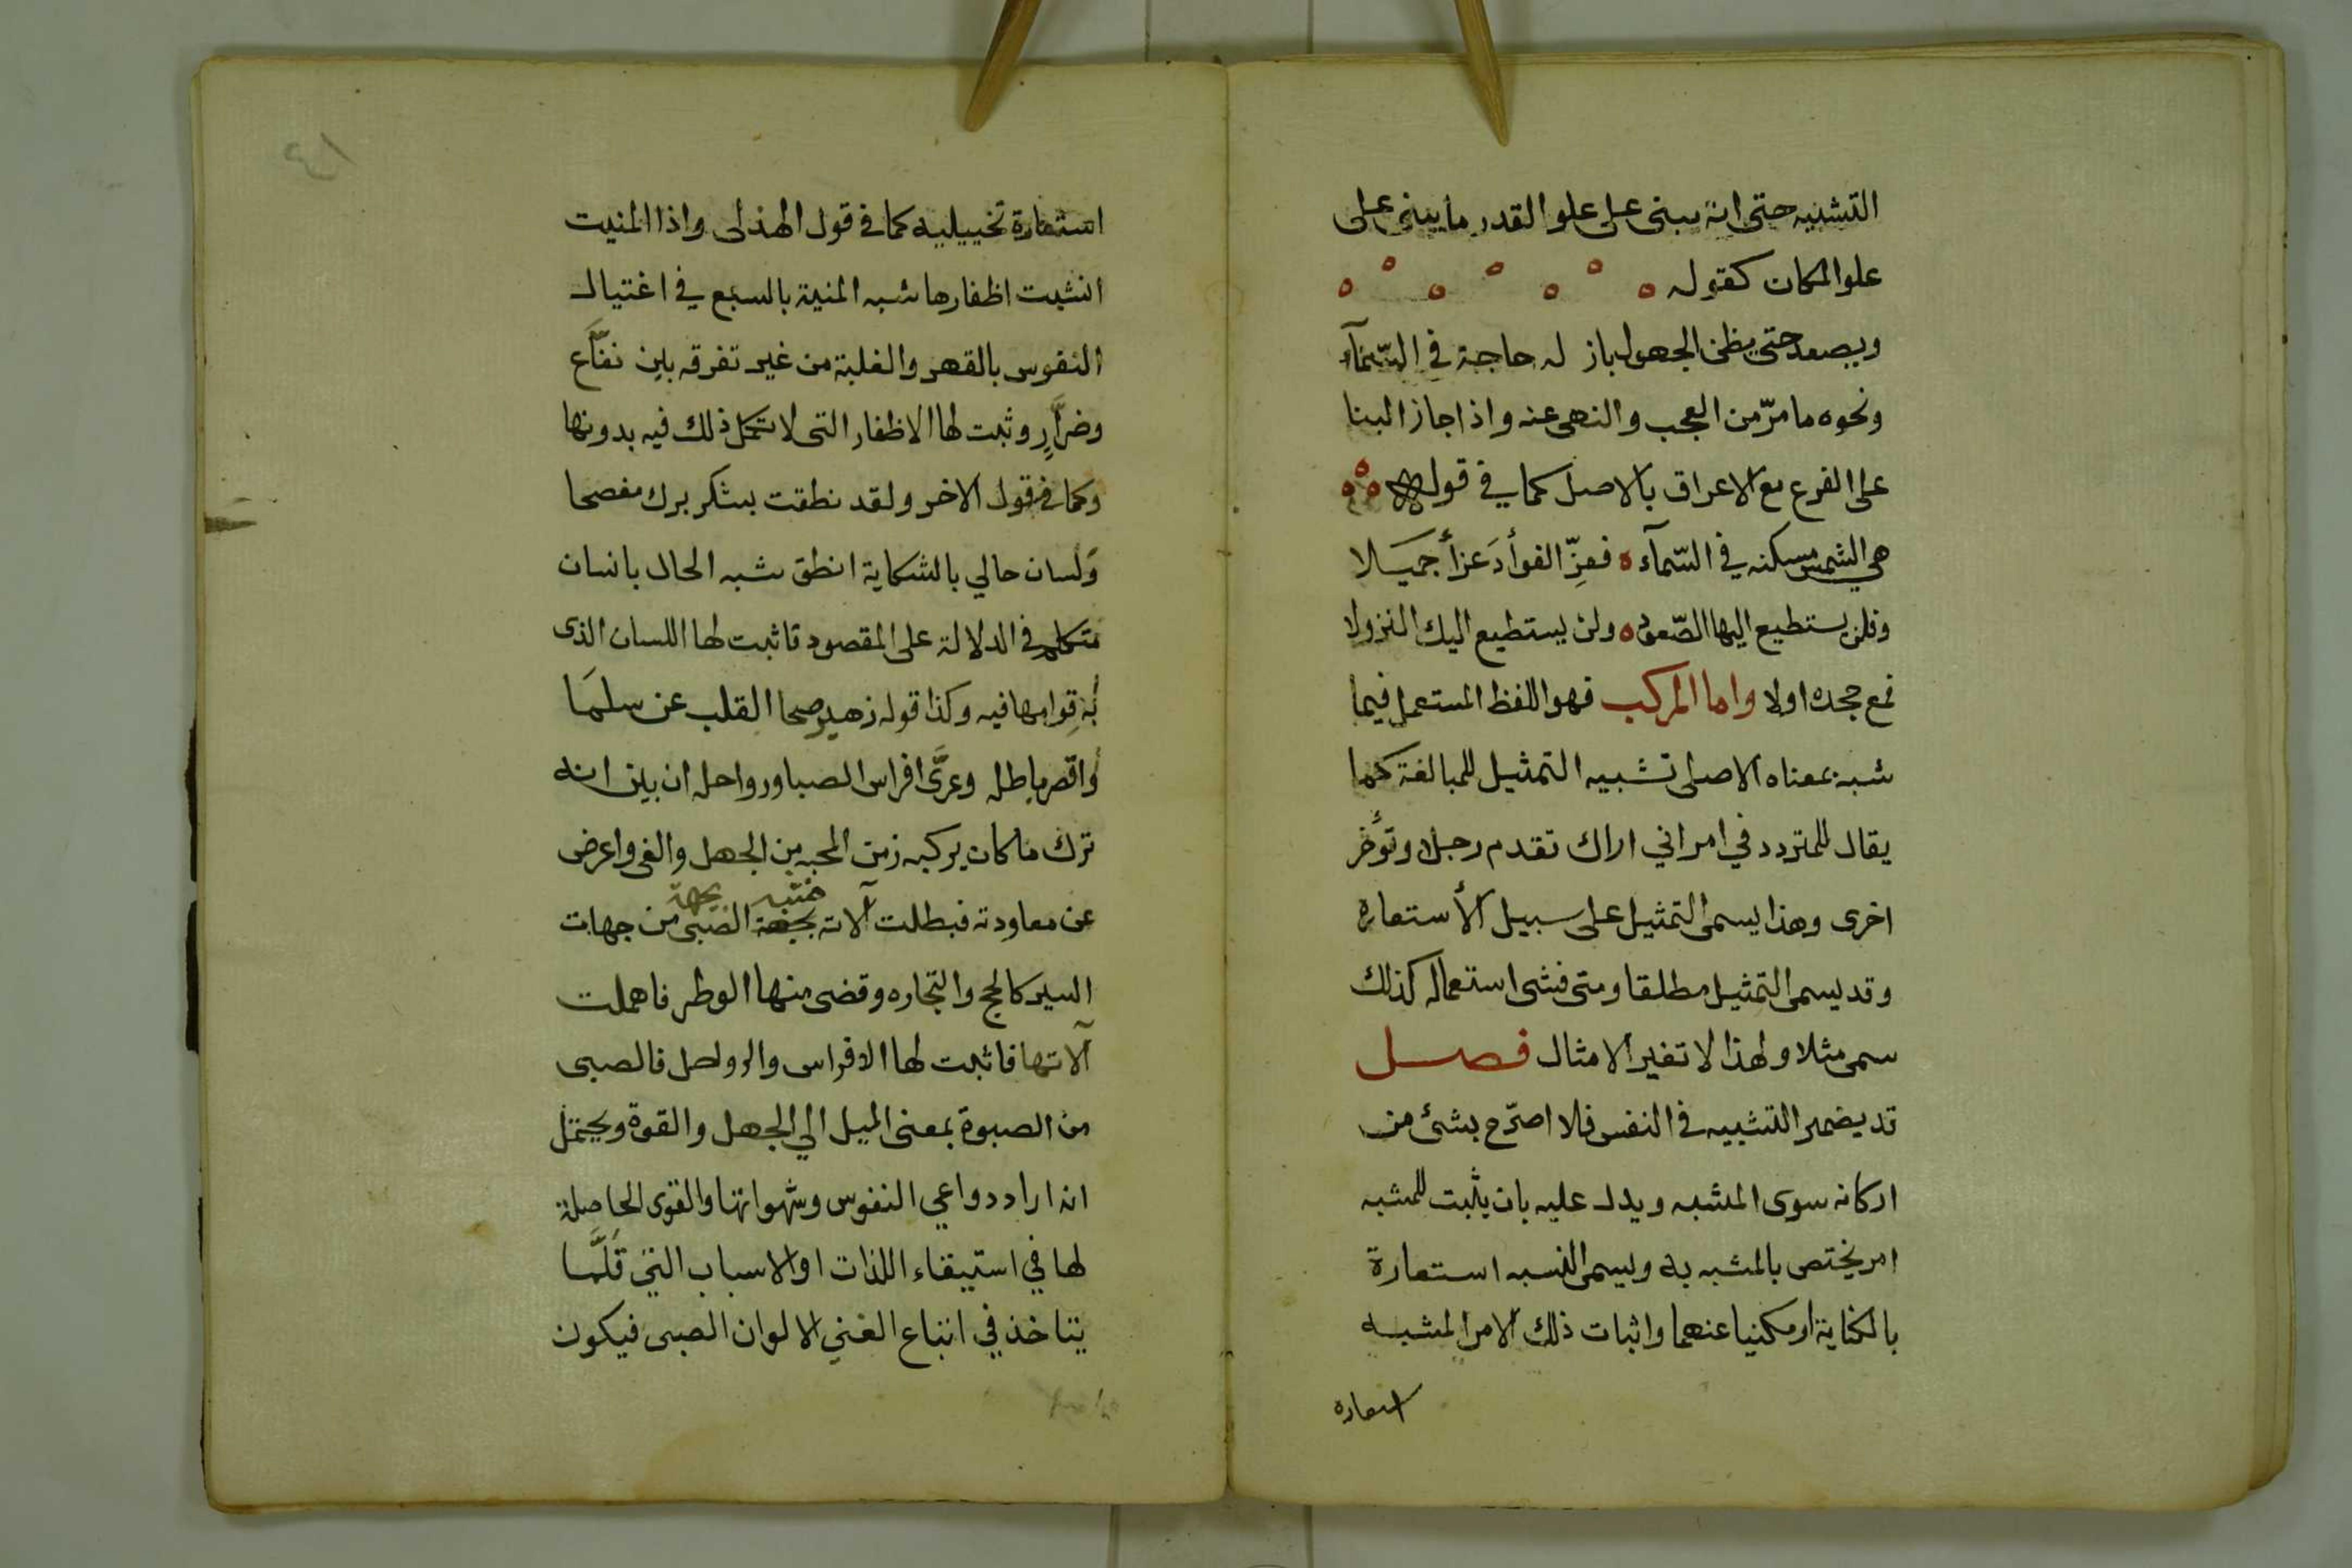 التشبيه حتى انه يبنى على علو القدر ما يبنى على
علو المكان كقوله
ويصعد حتى يظن الجهول باز له حاجة في السّمآء
ونحوه ما مرّ من العجب والنهى عنه واذا جاز البنا
على الفرع مع الاعراق بالاصل كما في قوله
هي الشمس مسكنه في السّمآء فعزّ الفوأد عزأ جميلا
وفلن يستطيع اليها الصّعود ولن يستطيع اليك النزولا
فمع جحده اولا واما المركب فهو اللفظ المستعمل فيما
شبه بمعناه الاصلى تشبيه التمثيل للمبالغة كما
يقال للمتردد في امر اني اراك تقدم رجلا وتؤخر
اخرى وهذا يسمى التمثيل على سبيل الأستعاره
وقد يسمى التمثيل مطلقا ومتى فشى استعماله كذلك
سمى مثلا ولهذا لا تغير الامثال فصل
قد يضمر التشبيه في النفس فلا اصرّح بشئ من
اركانه سوى المشبه ويدل عليه بان يثبت للمشبه
امر يختص بالمشبه به ويسمى النسبه استعارة
بالكناية او مكنيا عنهما واثبات ذلك الامر المشبه
استعاره
١٣
استعارة تخييليه كما في قول الهذلى واذا المنيت
انشبت اظفارها شبه المنية بالسبع في اغتيال
النفوس بالقهر والغلبة من غير تفرقه بين نفّاع
وضرّارٍ وثبت لها الاظفار التى لا تكمل ذلك فيه بدونها
وكما في قول الاخر ولقد نطقت بشكر برك مفصحا
ولسان حالي بالشكاية انطق شبه الحال بانسان
متكلم في الدلالة على المقصود فاثبت لها اللسان الذى
به قوامها فيه وكذا قوله زهير صحا القلب عن سلمَا
واقصر باطله وعرَّى افراس الصبا ورواحل ان بين انه
ترك ما كان يركبه زمن المحبه من الجهل والغى واعرض
عن معاودته فبطلت آلاته الصبى من جهات
السير كالحج والتجاره وقضى منها الوطر فاهملت
آلاتها فاثبت لها الافراس والرواحل فالصبى
من الصبوة بمعنى الميل الي الجهل والقوة ويحتمل
انه اراد دواعي النفوس وشهواتها والقوى الحاصلة
لها في استيفاء اللذات او الاسباب التى قلّما
يتاخذ في اتباع الغي الا لوان الصبى فيكون